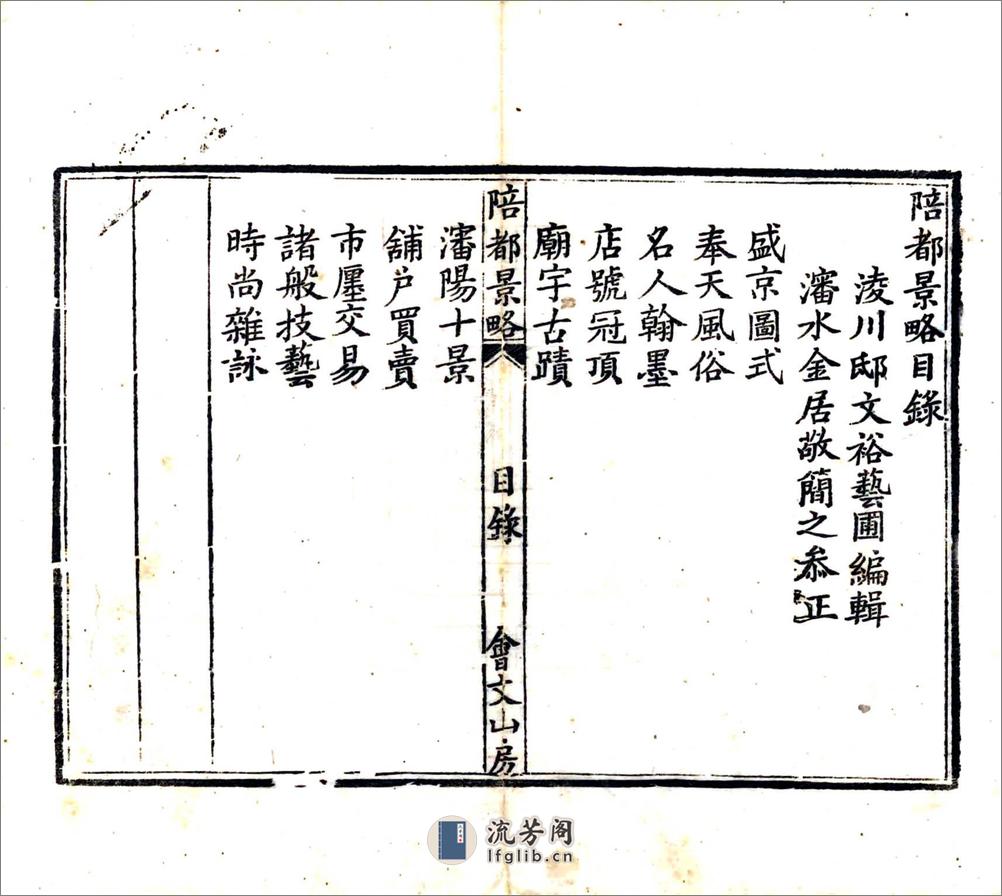 陪都景略目錄
淩川邸文裕藝圃編輯
瀋水金居敬簡之叅正
盛京圖式
奉天風俗
名人翰墨
店號冠頂
廟宇古蹟
陪都景略
目錄
會文山房
瀋陽十景
舖户買賣
市廛交易
諸般技藝
時尚雜詠
流芳阁
lfglib.cn